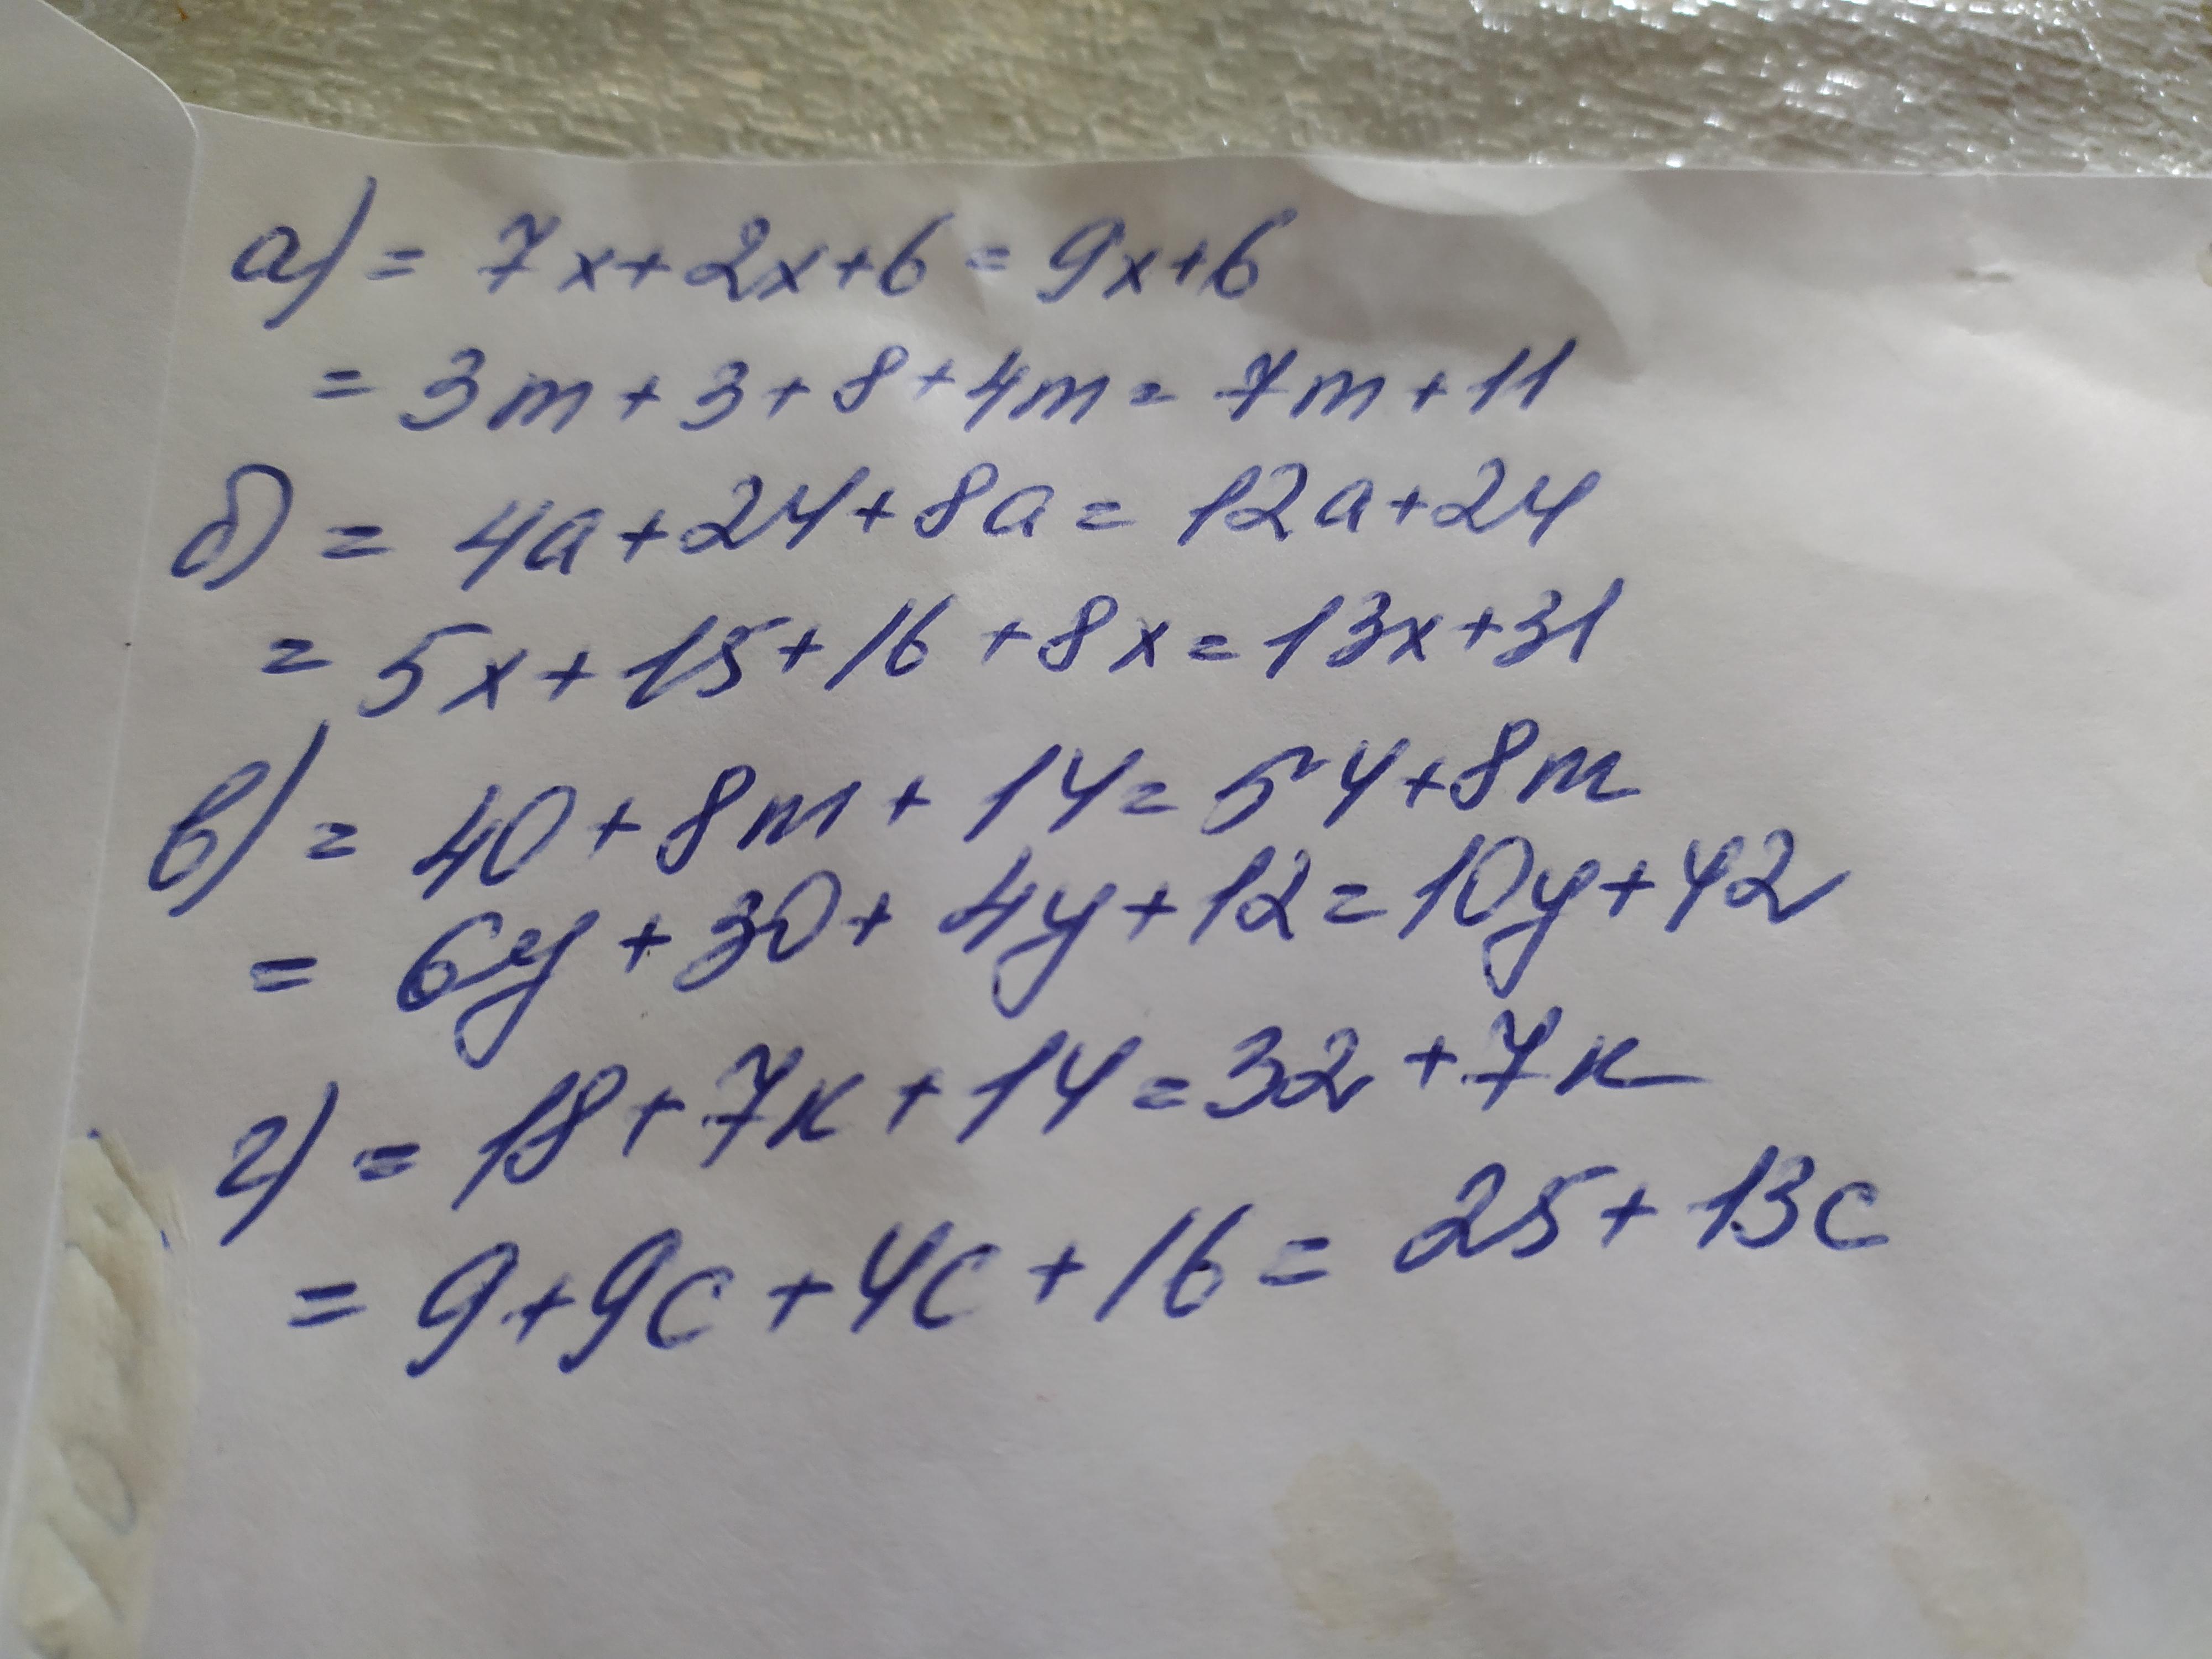 а) = 7x+2x+6 = 9x+6
= 3m + 3 + 8 + 4m = 7m + 11
б) = 4a + 24 + 8a = 12a+24
= 5x + 15 + 16 + 8x = 13x+31
в) = 40 + 8m + 14 = 54+8m
= 6y + 30 + 4y + 12 = 10y + 42
г) = 18 + 7к + 14 = 32 + 7к
= 9 + 9c + 4c + 16 = 25 + 13c